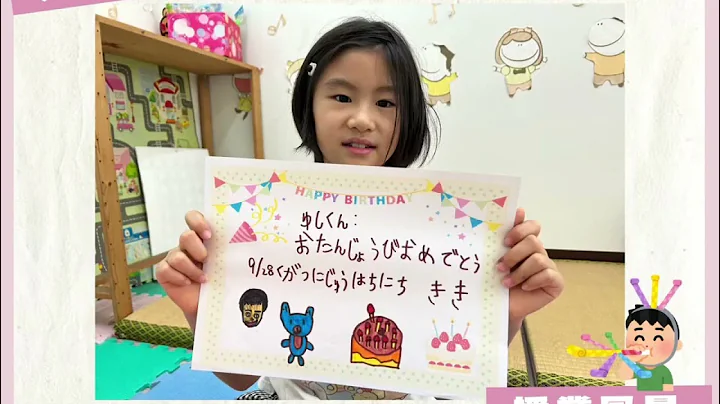 HAPPY BIRTHDAY
ゆしくん:
おたんじょうびおめでとう
9/28くがつにじゅうはちにち きき